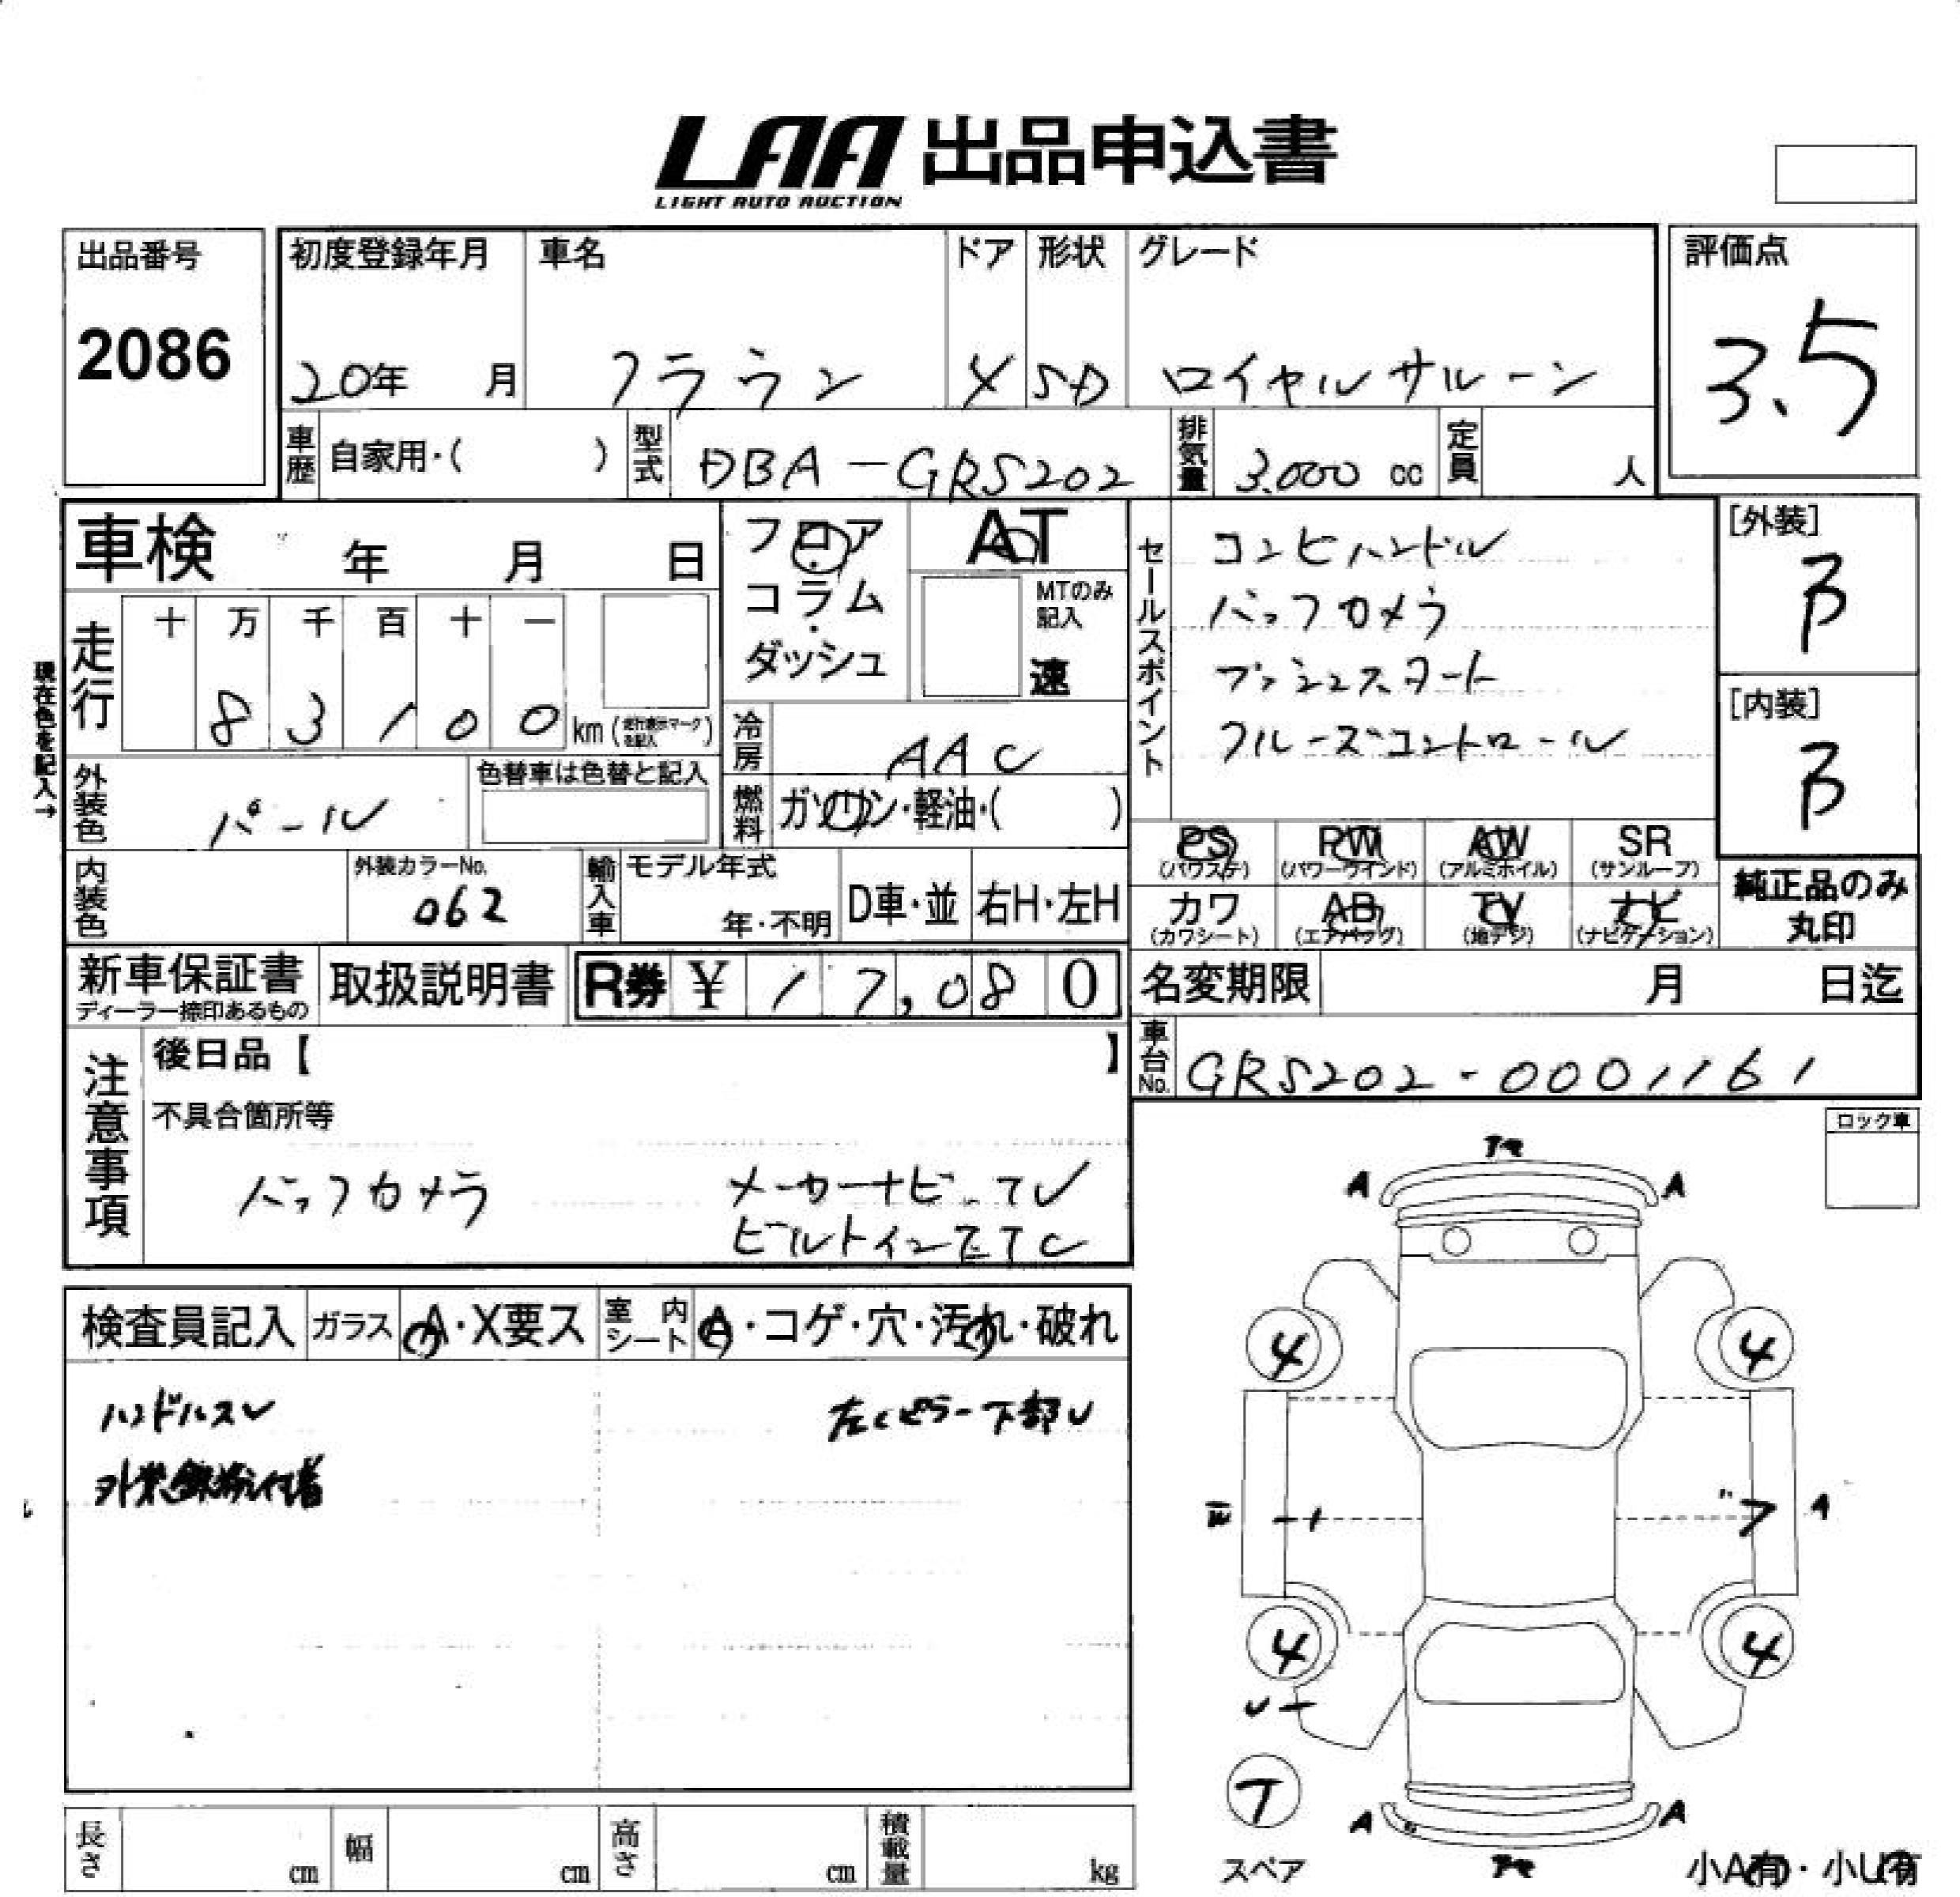 LAA 出品申込書
LIGHT AUTO AUCTION
出品番号
2086
初度登録年月
20年 月
車名
クラウン
ドア
4
形状
SD
グレード
ロイヤルサルーン
評価点
3.5
車歴 自家用・( )
型式 DBA-GRS202
排気量 3.000 cc
定員 人
車検 年 月 日
フロア
・
コラム
・
ダッシュ
AT
MTのみ
記入
速
セールスポイント
コンビハンドル
バックカメラ
プッシュスタート
クルーズコントロール
[外装]
B
[内装]
B
現在色を記入→
走行
十 万 千 百 十 一
8 3 1 0 0
km (走行表示マークを記入)
冷房 AAC
外装色 パール
色替車は色替と記入
燃料 ガソリン・軽油・( )
PS
(パワステ)
PW
(パワーウインド)
AW
(アルミホイル)
SR
(サンルーフ)
カワ
(カワシート)
AB
(エアバッグ)
TV
(地デジ)
ナビ
(ナビゲーション)
純正品のみ
丸印
内装色
外装カラーNo.
062
輸入車
モデル年式
年・不明
D車・並
右H・左H
新車保証書
ディーラー捺印あるもの
取扱説明書
R券 ¥ 1 7,0 8 0
名変期限 月 日迄
車台No. GRS202-0001161
注意事項
後日品【 】
不具合箇所等
バックカメラ メーカーナビ-TV
ビルトインETC
ロック車
検査員記入
ガラス
A・X要ス
室内シート
A・コゲ・穴・汚れ・破れ
ハンドルスレ
外装鉄粉付着
左Cピラー下部U
A
A
4
4
A
4
4
U
T
スペア
A
A
小A有・小U有
長さ cm
幅 cm
高さ cm
積載量 kg